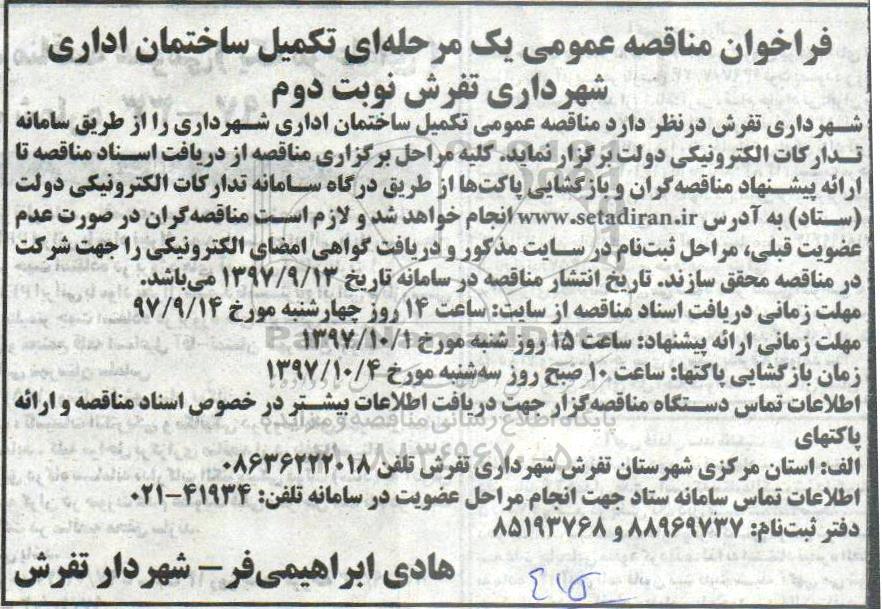 فراخوان مناقصه عمومی یک مرحله‌ای تکمیل ساختمان اداری
شهرداری تفرش نوبت دوم
شهرداری تفرش درنظر دارد مناقصه عمومی تکمیل ساختمان اداری شهرداری را از طریق سامانه
تدارکات الکترونیکی دولت برگزار نماید. کلیه مراحل برگزاری مناقصه از دریافت اسناد مناقصه تا
ارائه پیشنهاد مناقصه‌گران و بازگشایی پاکت‌ها از طریق درگاه سامانه تدارکات الکترونیکی دولت
(ستاد) به آدرس www.setadiran.ir انجام خواهد شد و لازم است مناقصه‌گران در صورت عدم
عضویت قبلی، مراحل ثبت‌نام در سایت مذکور و دریافت گواهی امضای الکترونیکی را جهت شرکت
در مناقصه محقق سازند. تاریخ انتشار مناقصه در سامانه تاریخ ۱۳۹۷/۹/۱۳ می‌باشد.
مهلت زمانی دریافت اسناد مناقصه از سایت: ساعت ۱۴ روز چهارشنبه مورخ ۹۷/۹/۱۴
مهلت زمانی ارائه پیشنهاد: ساعت ۱۵ روز شنبه مورخ ۱۳۹۷/۱۰/۱
زمان بازگشایی پاکتها: ساعت ۱۰ صبح روز سه‌شنبه مورخ ۱۳۹۷/۱۰/۴
اطلاعات تماس دستگاه مناقصه‌گزار جهت دریافت اطلاعات بیشتر در خصوص اسناد مناقصه و ارائه
پاکتهای
الف: استان مرکزی شهرستان تفرش شهرداری تفرش تلفن ۰۸۶۳۶۲۲۲۰۱۸
اطلاعات تماس سامانه ستاد جهت انجام مراحل عضویت در سامانه تلفن: ۴۱۹۳۴-۰۲۱
دفتر ثبت‌نام: ۸۸۹۶۹۷۳۷ و ۸۵۱۹۳۷۶۸
هادی ابراهیمی‌فر – شهردار تفرش